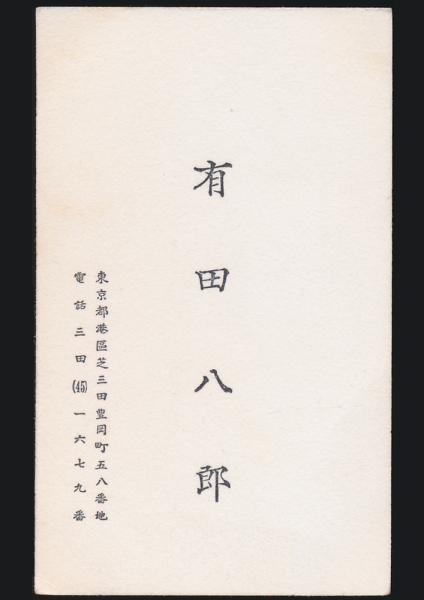 有田八郎
東京都港區芝三田豊岡町五八番地
電話三田(45)一六七九番